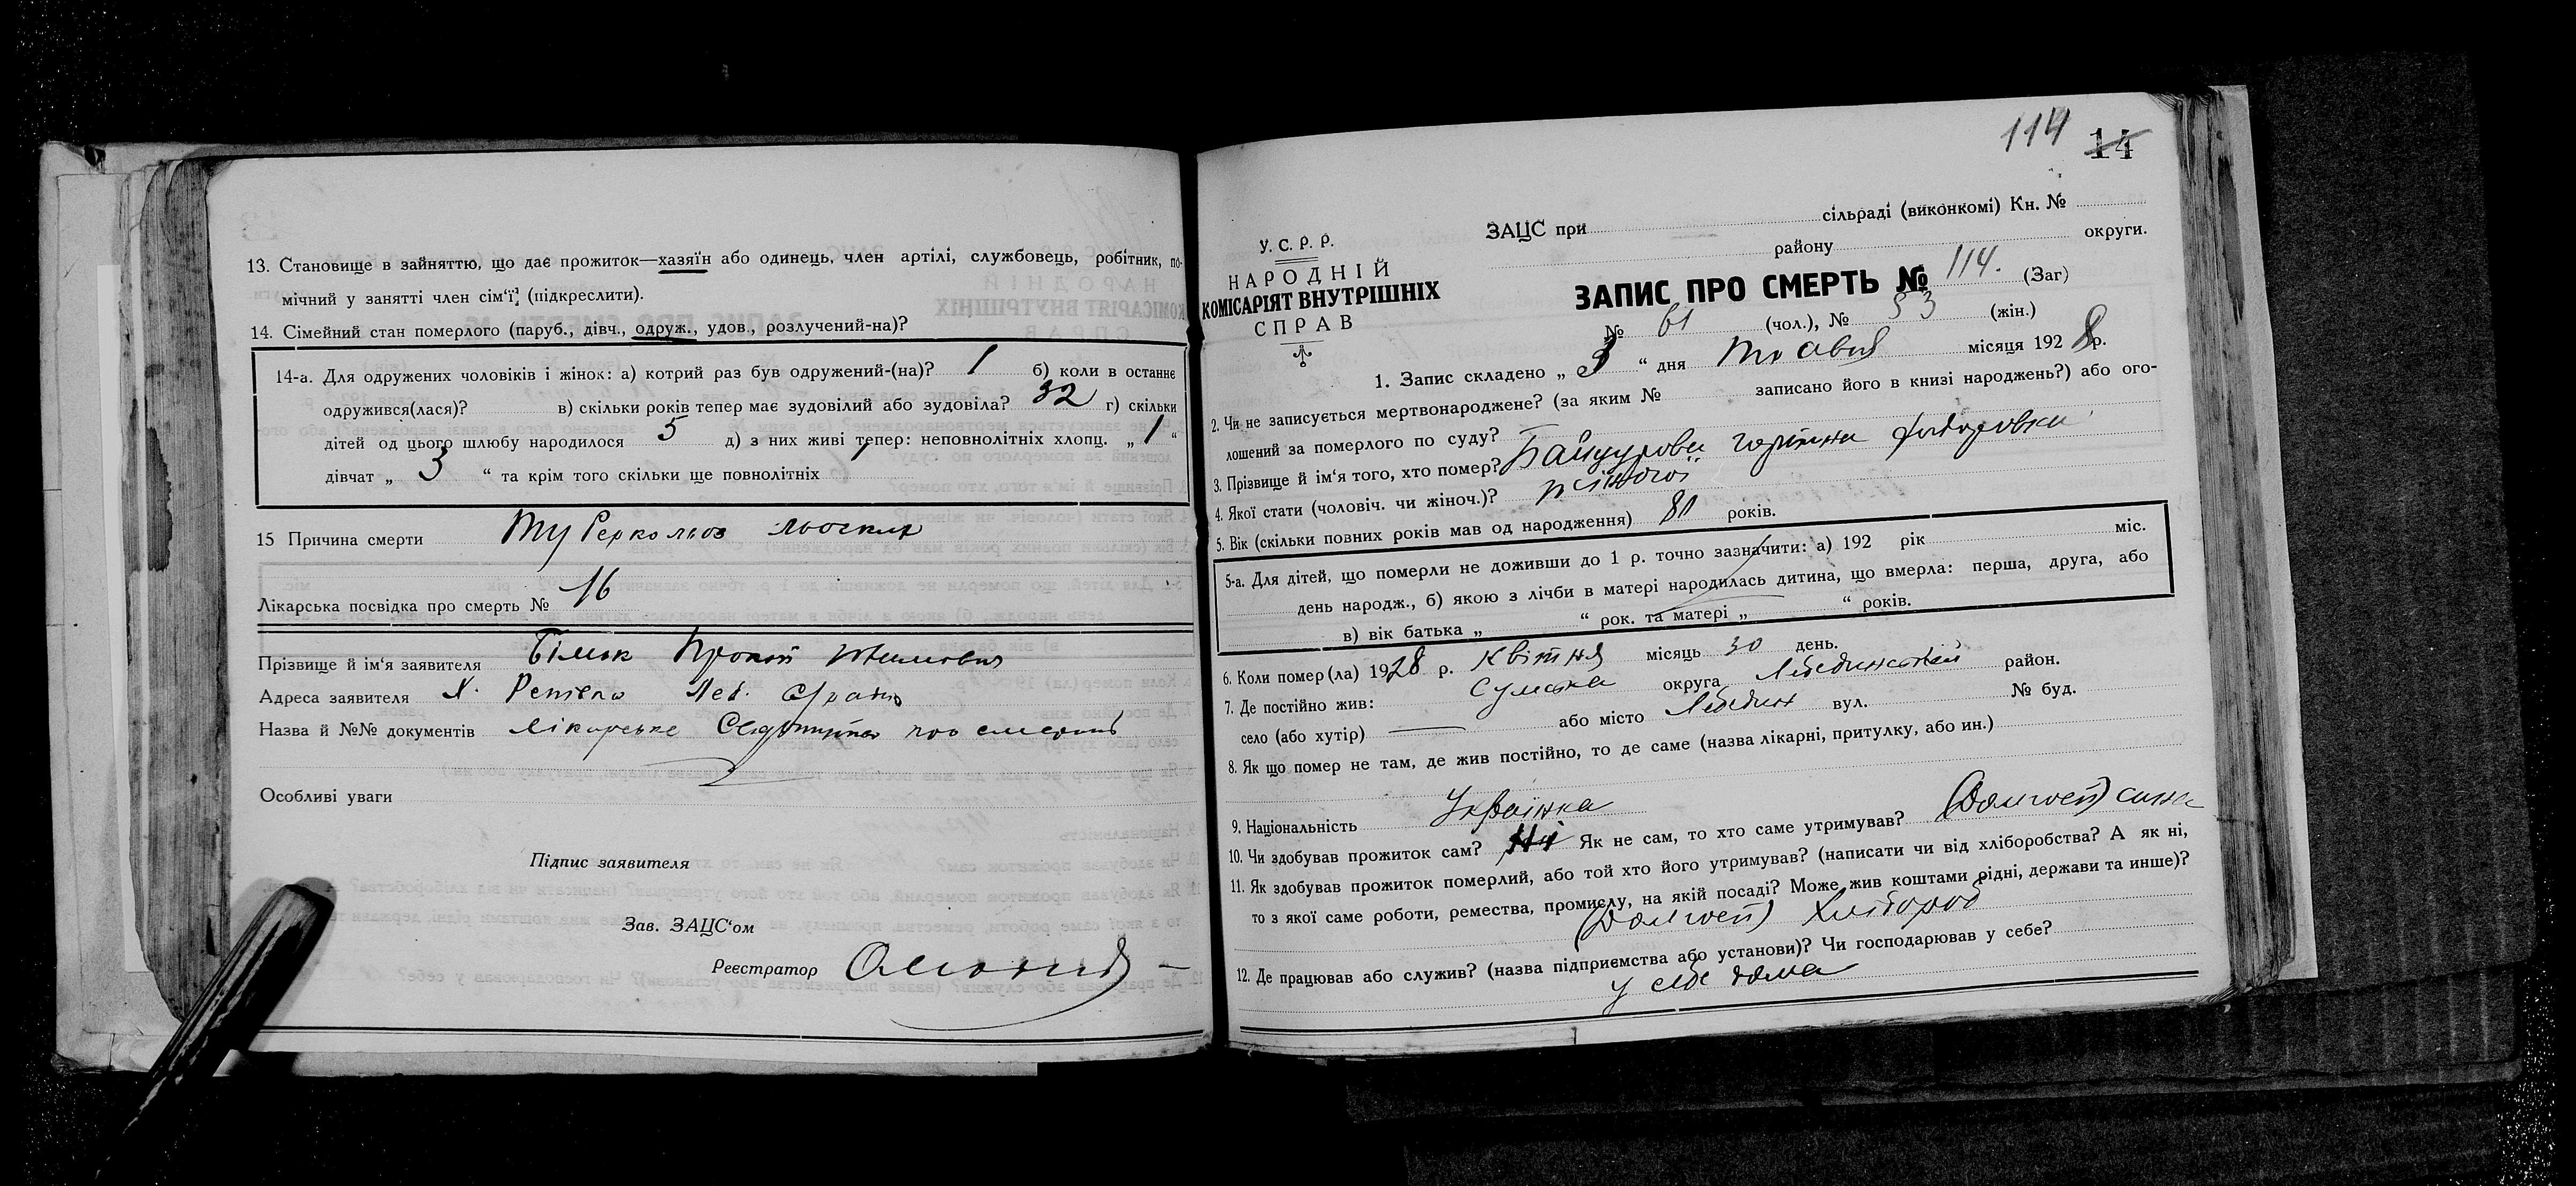 13. Становище в зайняттю, що дає прожиток—хазяїн або одинець, член артілі, службовець, робітник, по-
мічний у занятті член сім'ї (підкреслити).
14. Сімейний стан померлого (паруб., дівч., одруж., удов., розлучений-на)?
14-а. Для одружених чоловіків і жінок: а) котрий раз був одружений-(на)? 1 б) коли в останнє
одружився(лася)? в) скільки років тепер має зудовілий або зудовіла? 82 г) скільки
дітей од цього шлюбу народилося 5 д) з них живі тепер: неповнолітніх хлопц. „ 1 “
дівчат „ 3 “ та крім того скільки ще повнолітніх
15 Причина смерти Туберкольоз
Лікарська посвідка про смерть № 16
Прізвище й ім'я заявителя Білик Прокіп
Адреса заявителя х. Леб.
Назва й №№ документів лікарське про смерть
Особливі уваги
Підпис заявителя
Зав. ЗАЦС'ом
Реєстратор
114 14
У. С. Р. Р.
НАРОДНІЙ
КОМІСАРІЯТ ВНУТРІШНІХ
СПРАВ
ЗАЦС при сільраді (виконкомі) Кн. №
району округи.
ЗАПИС ПРО СМЕРТЬ № 114. (Заг)
№ 61 (чол.), № 53 (жін.)
1. Запис складено „ 3 “ дня травня місяця 1928 р.
2. Чи не записується мертвонароджене? (за яким № записано його в книзі народжень?) або ого-
лошений за померлого по суду?
3. Прізвище й ім'я того, хто помер?
4. Якої стати (чоловіч. чи жіноч.)? жіночої
5. Вік (скільки повних років мав од народження) років.
5-а. Для дітей, що померли не доживши до 1 р. точно зазначити: а) 192 рік міс.
день народж., б) якою з лічби в матері народилась дитина, що вмерла: перша, друга, або
в) вік батька „ “ рок. та матері „ “ років.
6. Коли помер(ла) 1928 р. квітня місяць 30 день.
7. Де постійно жив: Сумська округа Лебединський район.
село (або хутір) — або місто Лебедин вул. № буд.
8. Як що помер не там, де жив постійно, то де саме (назва лікарні, притулку, або ин.)
9. Національність Українка
10. Чи здобував прожиток сам? Ні Як не сам, то хто саме утримував? сина
11. Як здобував прожиток померлий, або той хто його утримував? (написати чи від хліборобства? А як ні,
то з якої саме роботи, ремества, промислу, на якій посаді? Може жив коштами рідні, держави та инше)?
12. Де працював або служив? (назва підприємства або установи)? Чи господарював у себе?
у себе дома